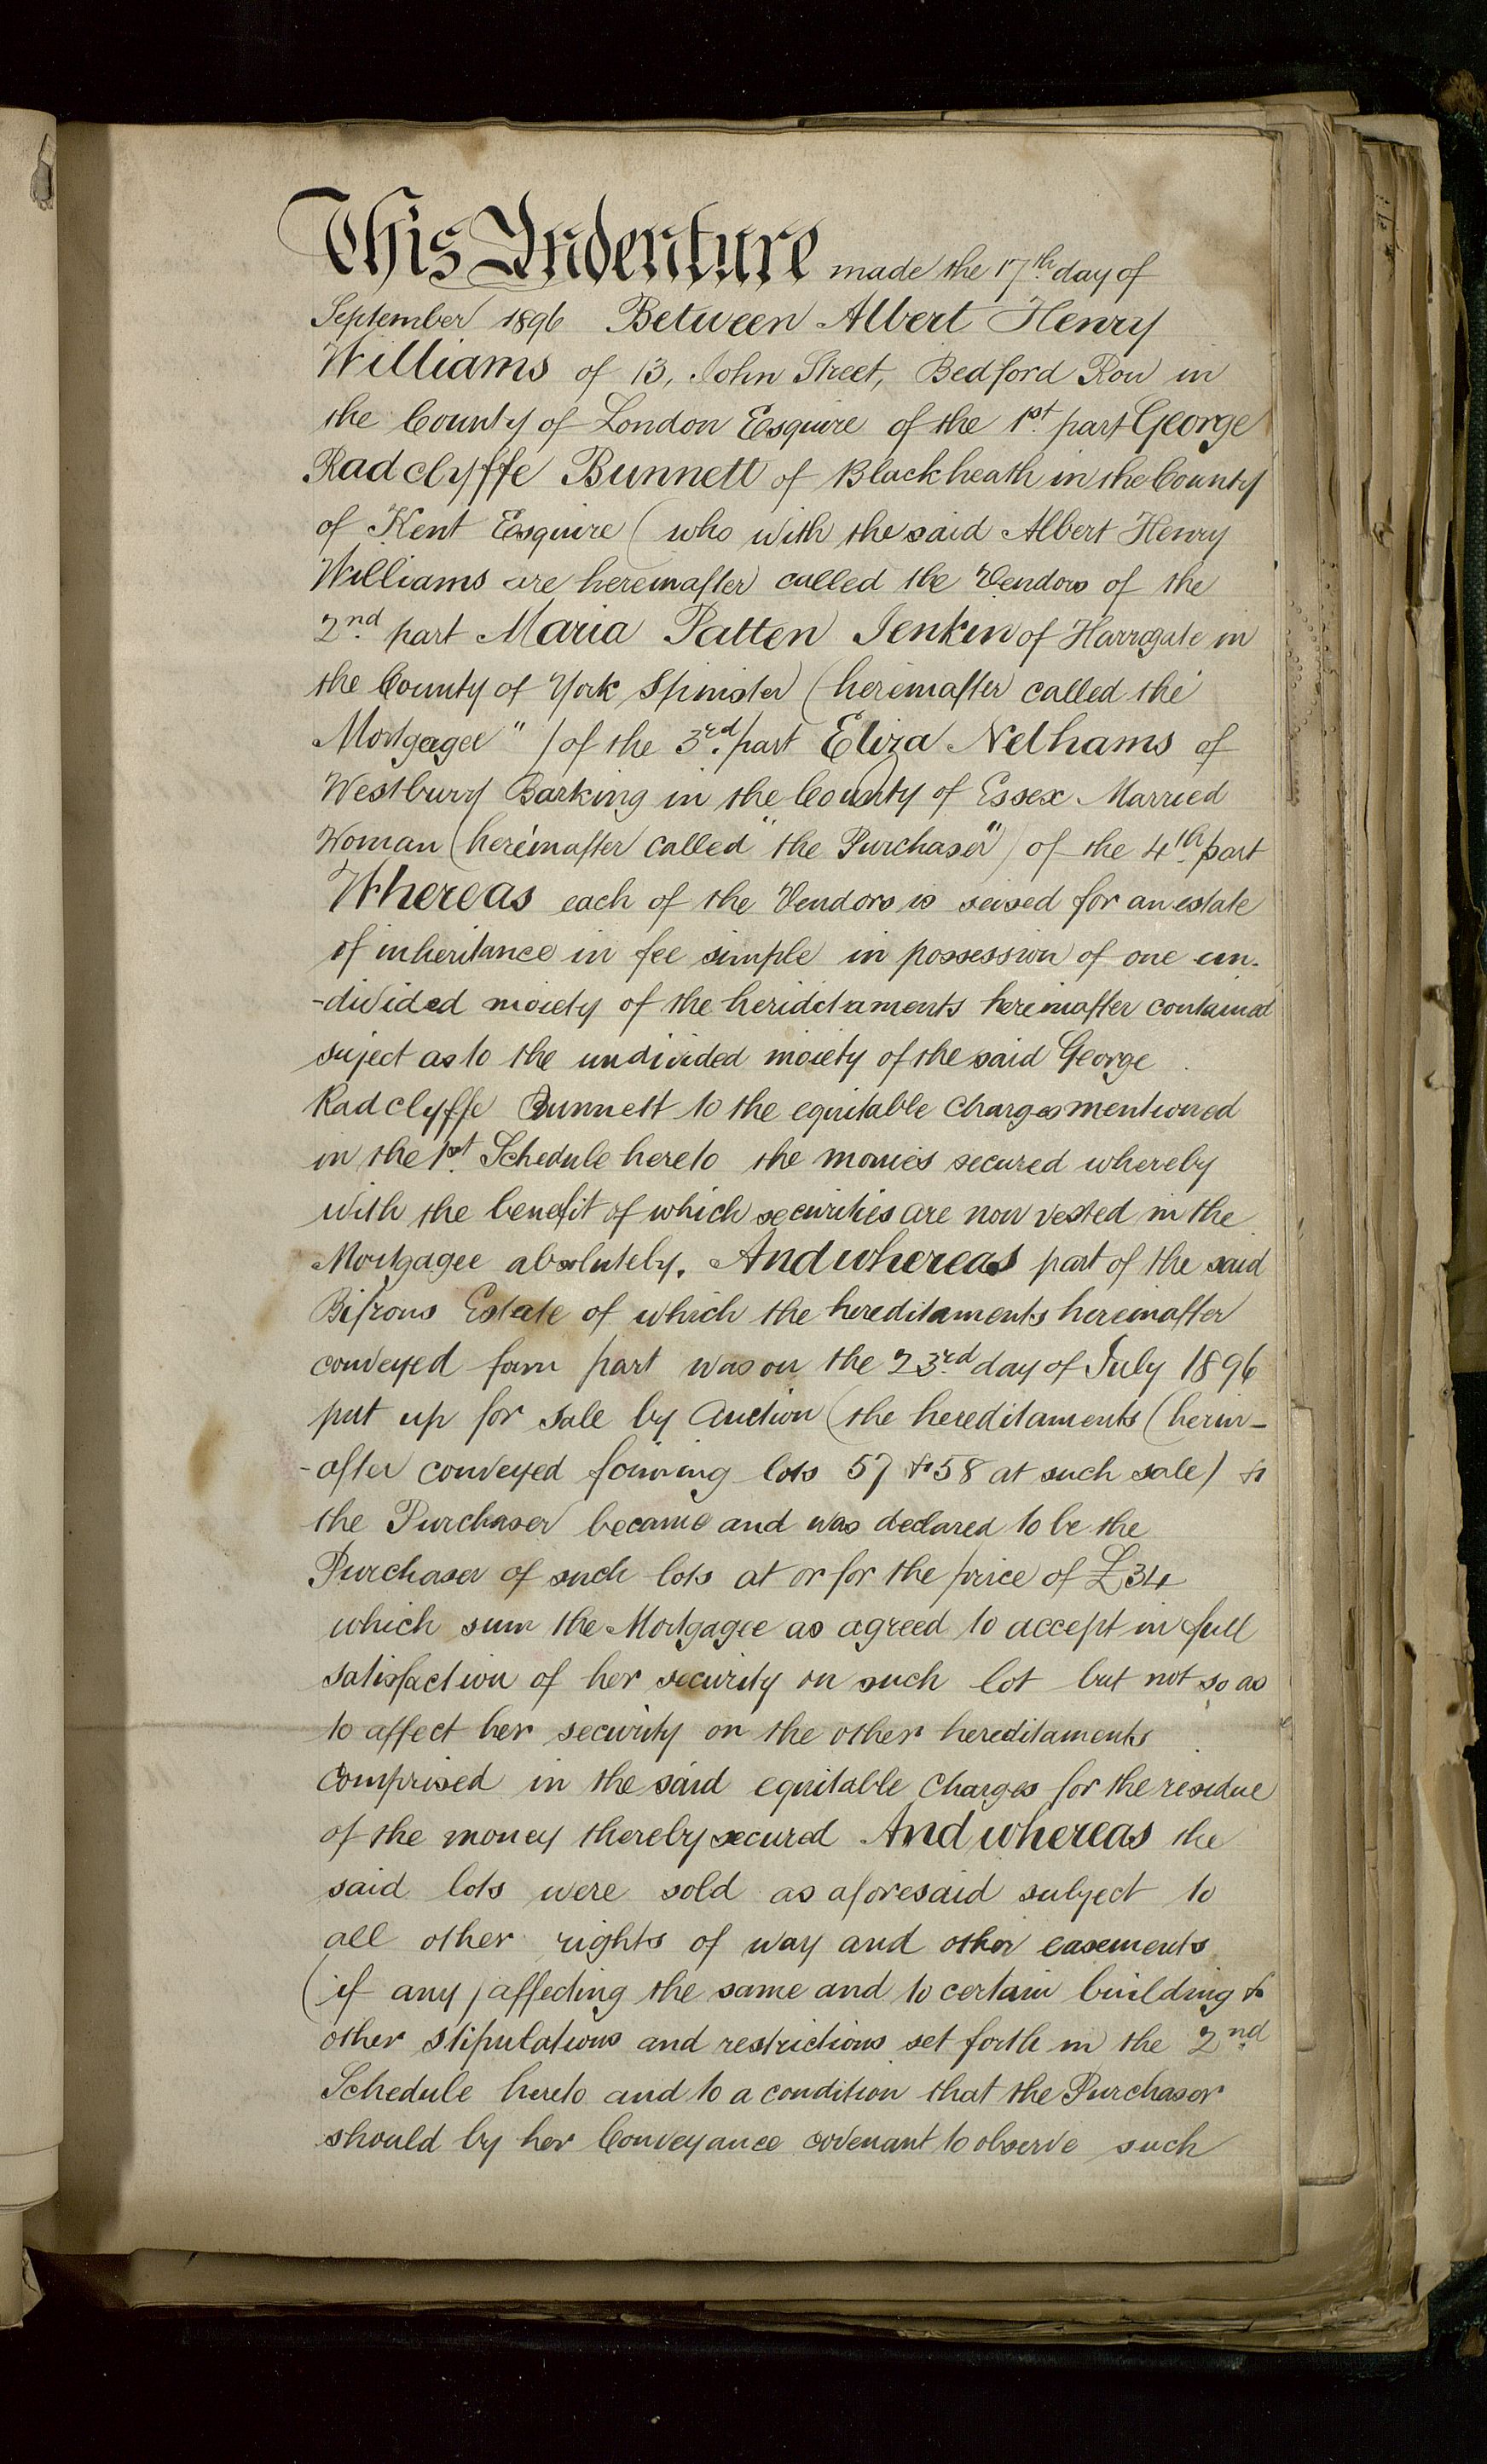 This Indenture made the 17th day of
September 1896 Between Albert Henry
Williams of 13, John Street, Bedford Row in
the County of London Esquire of the 1st part George
Radclyffe Bunnett of Blackheath in the County
of Kent Esquire (who with the said Albert Henry
Williams are hereinafter called the Vendors of the
2nd part Maria Patten Jenkin of Harrogate in
the County of York Spinster (hereinafter called the
Mortgagee") of the 3rd part Eliza Nelhams of
Westbury Barking in the County of Essex Married
Woman (hereinafter called "the Purchaser") of the 4th part
Whereas each of the Vendors is seised for an estate
of inheritance in fee simple in possession of one un-
-divided moiety of the heriditaments hereinafter contained
suject as to the undivided moiety of the said George
Radclyffe Bunnett to the equitable charges mentioned
in the 1st Schedule hereto the monies secured whereby
with the benefit of which securities are now vested in the
Mortgagee absolutely. And whereas part of the said
Bifrons Estate of which the hereditaments hereinafter
conveyed form part was on the 23rd day of July 1896
put up for sale by Auction (the hereditaments (herin-
-after conveyed forming lots 57 & 58 at such sale) &
the Purchaser became and was declared to be the
Purchaser of such lots at or for the price of £34
which sum the Mortgagee as agreed to accept in full
satisfaction of her security on such lot but not so as
to affect her security on the other hereditaments
comprised in the said equitable charges for the residue
of the money thereby secured And whereas the
said lots were sold as aforesaid subject to
all other rights of way and other easements
(if any) affecting the same and to certain building &
other stipulations and restrictions set forth in the 2nd
Schedule hereto and to a condition that the Purchaser
should by her Conveyance covenant to observe such